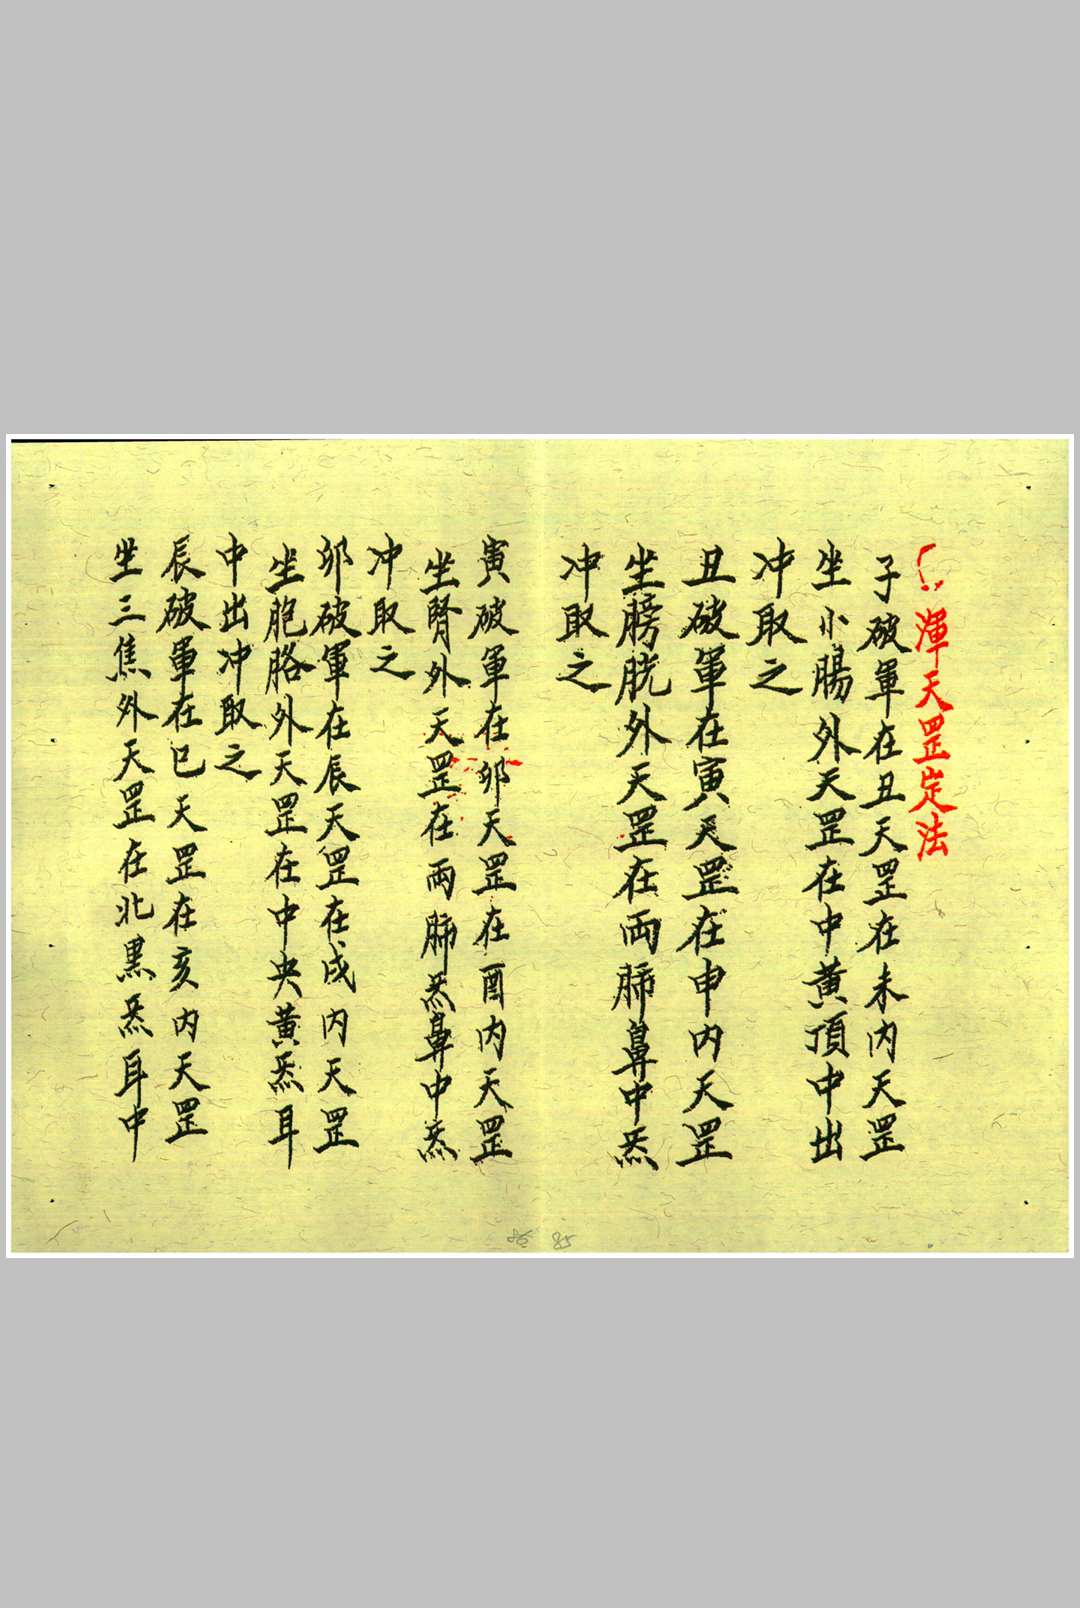 渾天罡定法
子破軍在丑天罡在未内天罡
坐小腸外天罡在中黃頂中出
冲取之
丑破軍在寅天罡在申内天罡
坐膀胱外天罡在両肺鼻中炁
冲取之
寅破軍在卯天罡在酉内天罡
坐腎外天罡在両肺炁鼻中炁
冲取之
卯破軍在辰天罡在戌内天罡
坐胞胳外天罡在中央黃炁耳
中出冲取之
辰破軍在巳天罡在亥内天罡
坐三焦外天罡在北黒炁耳中
86 85